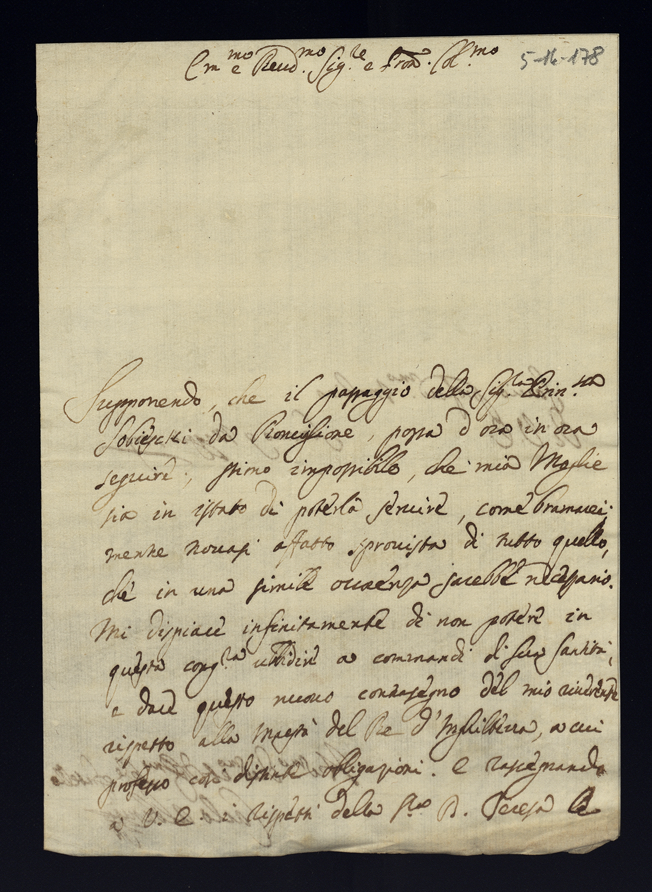 Em.mo e Reud.mo Sig.re e Pron. Col.mo 5-14-178
Supponendo, che il passaggio della Sig.ra Prin.ssa
Sobieschi da Ronciglione, possa d'ora in ora
seguire, stimo impossibile, che mia Moglie
sia in istato di poterla servire, come bramarei,
mentre trovasi affatto sprovista di tutto quello,
che in una simile occorenza sarebbe necessario.
Mi dispiace infinitamente di non potere in
questa cong.ra ubbidire a comandi di sua Santità,
e dare questo nuovo contrasegno del mio riverente
rispetto alla Maestà del Re d'Inghilterra, a cui
professo così distinte obligazioni. E rasegnando
a V. E. i rispetti della B. Teresa